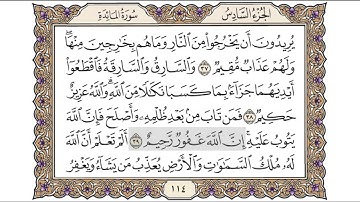 الجزء السادس
سورة المائدة
يُرِيدُونَ أَن يَخْرُجُوا۟ مِنَ ٱلنَّارِ وَمَا هُم بِخَٰرِجِينَ مِنْهَا ۖ
وَلَهُمْ عَذَابٌ مُّقِيمٌ ٣٧ وَٱلسَّارِقُ وَٱلسَّارِقَةُ فَٱقْطَعُوٓا۟
أَيْدِيَهُمَا جَزَآءًۢ بِمَا كَسَبَا نَكَٰلًا مِّنَ ٱللَّهِ ۗ وَٱللَّهُ عَزِيزٌ
حَكِيمٌ ٣٨ فَمَن تَابَ مِنۢ بَعْدِ ظُلْمِهِۦ وَأَصْلَحَ فَإِنَّ ٱللَّهَ
يَتُوبُ عَلَيْهِ ۗ إِنَّ ٱللَّهَ غَفُورٌ رَّحِيمٌ ٣٩ أَلَمْ تَعْلَمْ أَنَّ ٱللَّهَ
لَهُۥ مُلْكُ ٱلسَّمَٰوَٰتِ وَٱلْأَرْضِ يُعَذِّبُ مَن يَشَآءُ وَيَغْفِرُ
١١٤